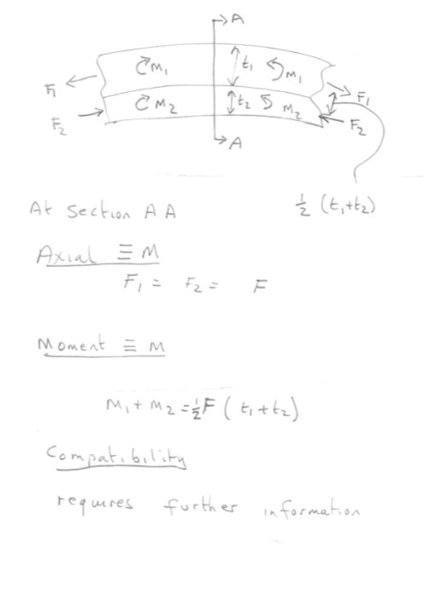 A
t₁
M₁
M₁
F₁
F₁
M₂
t₂
M₂
F₂
F₂
A
½ (t₁+t₂)
At section A A
Axial ≡ M
F₁ = F₂ = F
Moment ≡ M
M₁ + M₂ = ½F ( t₁+t₂)
Compatibility
requires further information